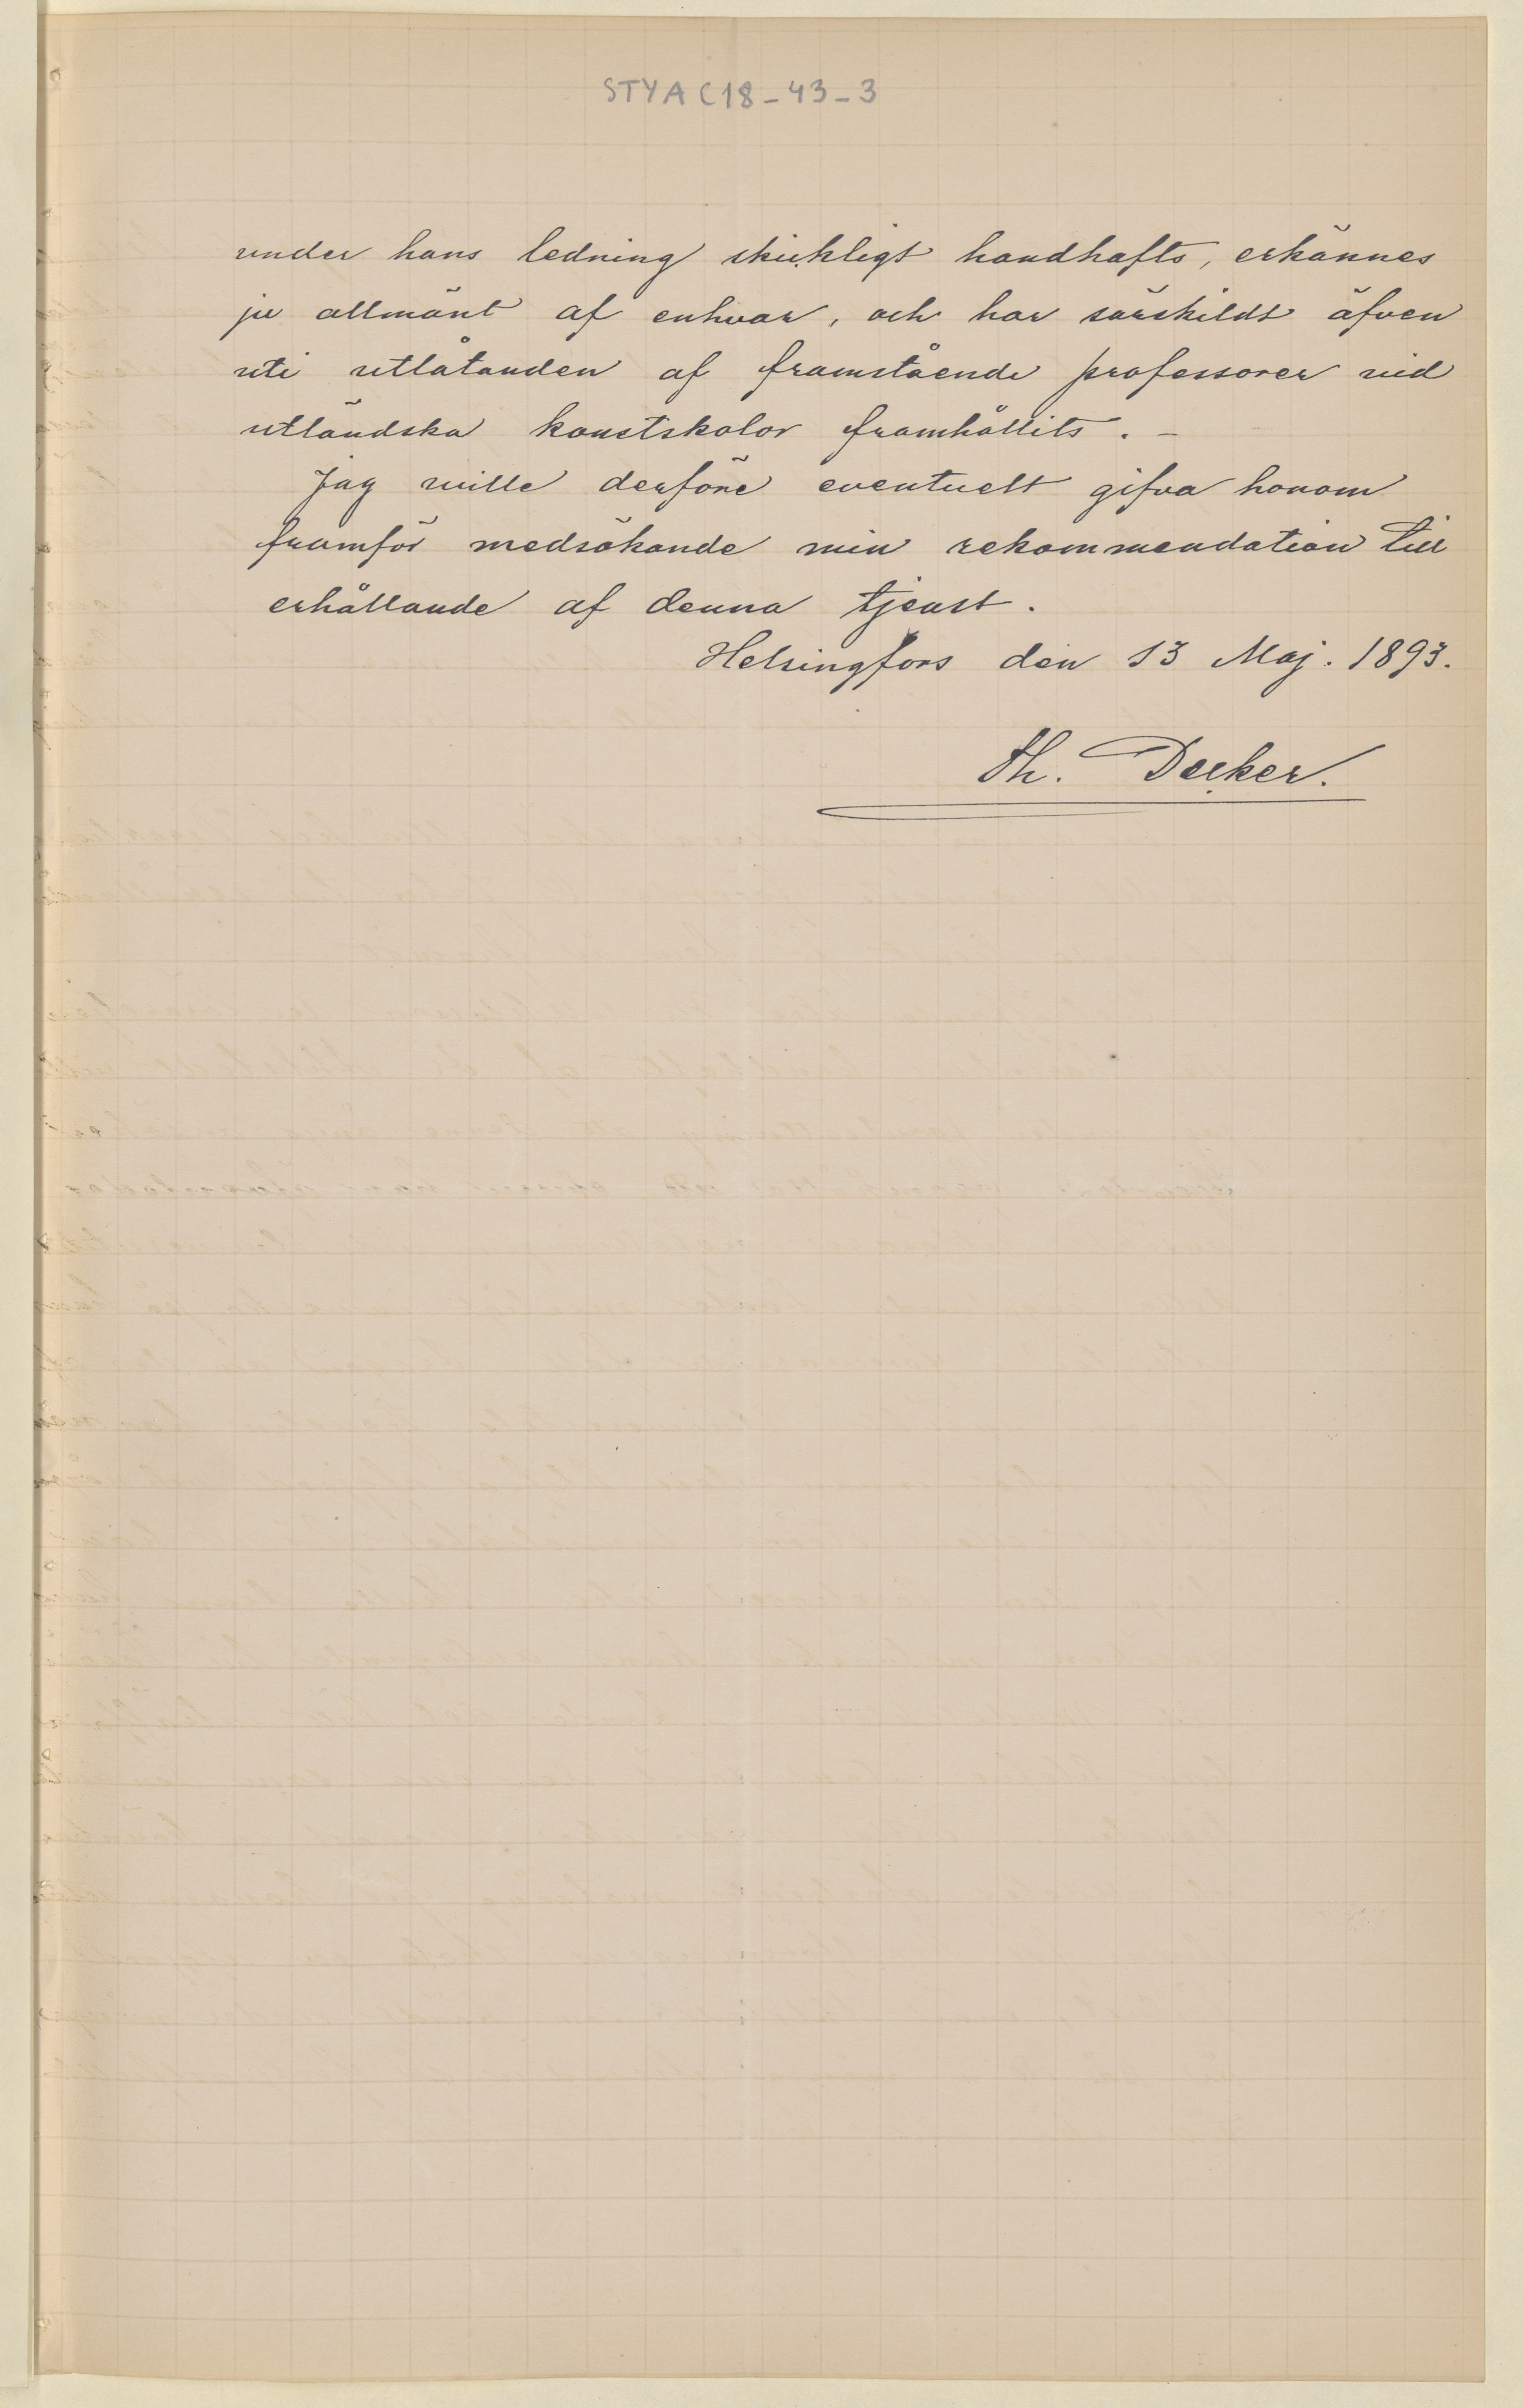 STYA C18-43-3
under hans ledning skickligt handhafts, erkännes
ju allmänt af enhvar, och har särskildt äfven
uti utlåtanden af framstående professorer vid
utländska konstskolor framhållits. -
Jag ville derföre eventuelt gifva honom
framför medsökande min rekommendation till
erhållande af denna tjenst.
Helsingfors den 13 Maj. 1893.
Th. Decker.